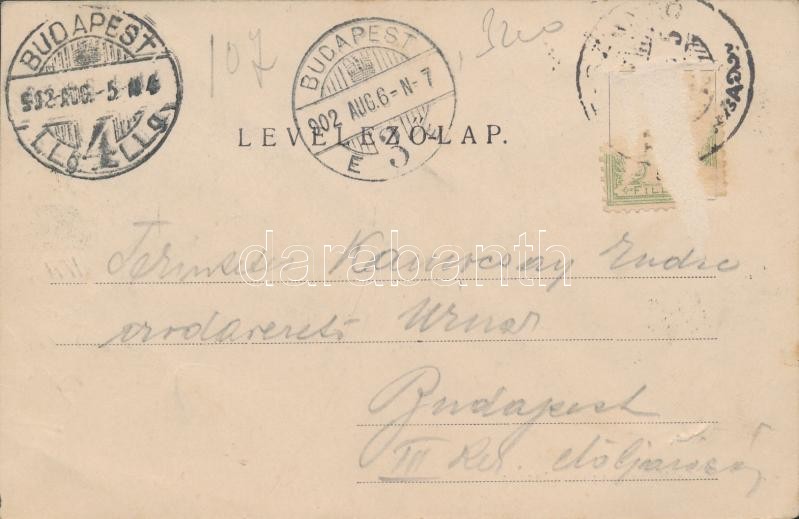 BUDAPEST
902 AUG. 5
4
BUDAPEST
902 AUG.6-N-7
E 3
107
LEVELEZŐ-LAP.
FILL
darabanth
Tekintetes Endre
irodavezető Urnak
Budapest
III ker. elöljáróság